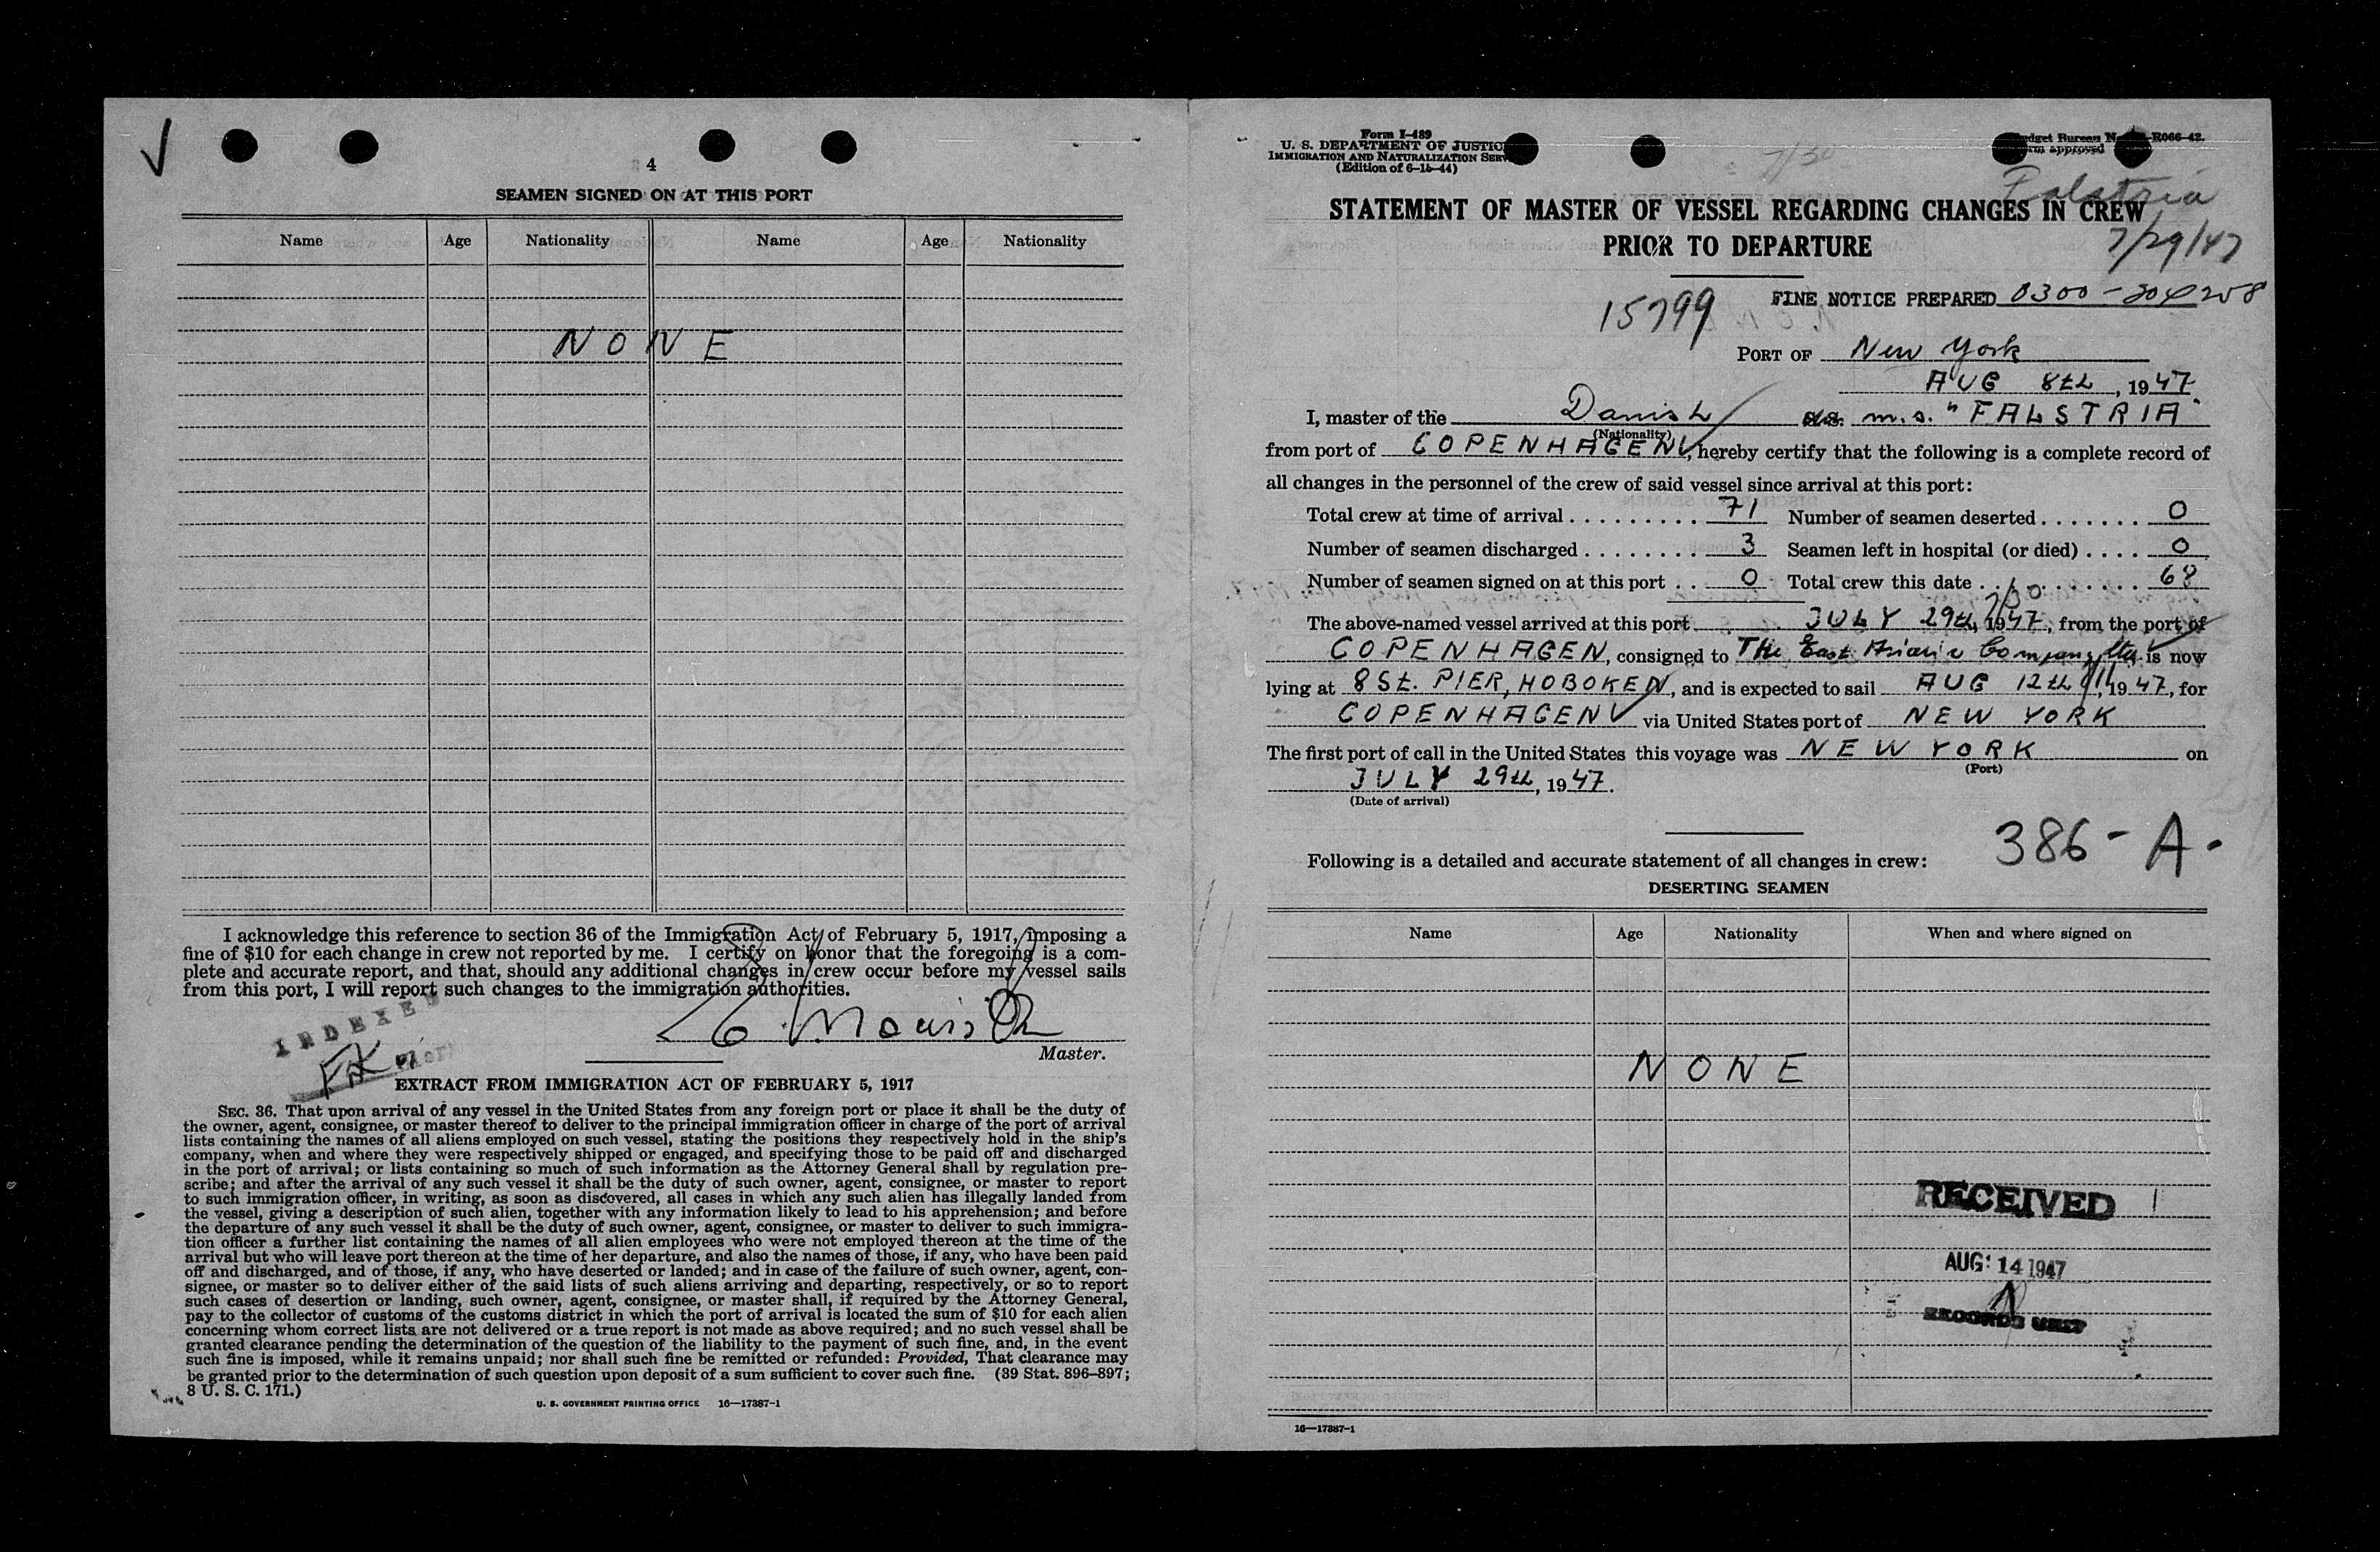 4
SEAMEN SIGNED ON AT THIS PORT
Name Age Nationality Name Age Nationality
NONE
I acknowledge this reference to section 36 of the Immigration Act of February 5, 1917, imposing a
fine of $10 for each change in crew not reported by me. I certify on honor that the foregoing is a com-
plete and accurate report, and that, should any additional changes in crew occur before my vessel sails
from this port, I will report such changes to the immigration authorities.
INDEXED
Master.
EXTRACT FROM IMMIGRATION ACT OF FEBRUARY 5, 1917
SEC. 36. That upon arrival of any vessel in the United States from any foreign port or place it shall be the duty of
the owner, agent, consignee, or master thereof to deliver to the principal immigration officer in charge of the port of arrival
lists containing the names of all aliens employed on such vessel, stating the positions they respectively hold in the ship's
company, when and where they were respectively shipped or engaged, and specifying those to be paid off and discharged
in the port of arrival; or lists containing so much of such information as the Attorney General shall by regulation pre-
scribe; and after the arrival of any such vessel it shall be the duty of such owner, agent, consignee, or master to report
to such immigration officer, in writing, as soon as discovered, all cases in which any such alien has illegally landed from
the vessel, giving a description of such alien, together with any information likely to lead to his apprehension; and before
the departure of any such vessel it shall be the duty of such owner, agent, consignee, or master to deliver to such immigra-
tion officer a further list containing the names of all alien employees who were not employed thereon at the time of the
arrival but who will leave port thereon at the time of her departure, and also the names of those, if any, who have been paid
off and discharged, and of those, if any, who have deserted or landed; and in case of the failure of such owner, agent, con-
signee, or master so to deliver either of the said lists of such aliens arriving and departing, respectively, or so to report
such cases of desertion or landing, such owner, agent, consignee, or master shall, if required by the Attorney General,
pay to the collector of customs of the customs district in which the port of arrival is located the sum of $10 for each alien
concerning whom correct lists are not delivered or a true report is not made as above required; and no such vessel shall be
granted clearance pending the determination of the question of the liability to the payment of such fine, and, in the event
such fine is imposed, while it remains unpaid; nor shall such fine be remitted or refunded: Provided, That clearance may
be granted prior to the determination of such question upon deposit of a sum sufficient to cover such fine. (39 Stat. 896–897;
8 U. S. C. 171.)
U. S. GOVERNMENT PRINTING OFFICE 16—17387-1
Form I-489
U. S. DEPARTMENT OF JUSTIC
IMMIGRATION AND NATURALIZATION SERV
(Edition of 6-15-44)
7/30
dget Bureau N R066-42.
rm approved
Falstria
STATEMENT OF MASTER OF VESSEL REGARDING CHANGES IN CREW
PRIOR TO DEPARTURE
7/29/47
FINE NOTICE PREPARED 0300-
15799
PORT OF New York
AUG 8th, 1947
I, master of the Danish m.s. "FALSTRIA"
(Nationality)
from port of COPENHAGEN, hereby certify that the following is a complete record of
all changes in the personnel of the crew of said vessel since arrival at this port:
Total crew at time of arrival 71 Number of seamen deserted 0
Number of seamen discharged 3 Seamen left in hospital (or died) 0
Number of seamen signed on at this port 0 Total crew this date 68
7/30
The above-named vessel arrived at this port JULY 29th, 1947, from the port of
COPENHAGEN, consigned to The East Asiatic Company Ltd. is now
lying at 8 St. PIER, HOBOKEN, and is expected to sail AUG 12th, 1947, for
COPENHAGEN via United States port of NEW YORK
The first port of call in the United States this voyage was NEW YORK on
(Port)
JULY 29th, 1947.
(Date of arrival)
386-A-
Following is a detailed and accurate statement of all changes in crew:
DESERTING SEAMEN
Name Age Nationality When and where signed on
NONE
RECEIVED
AUG 14 1947
RECORDS UNIT
16—17387-1